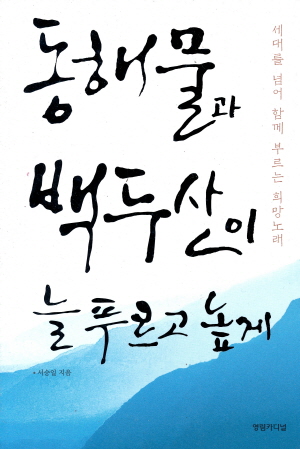 동해물과
백두산이
늘 푸르고 높게
세대를 넘어 함께 부르는 희망노래
• 사승일 지음
영림카디널